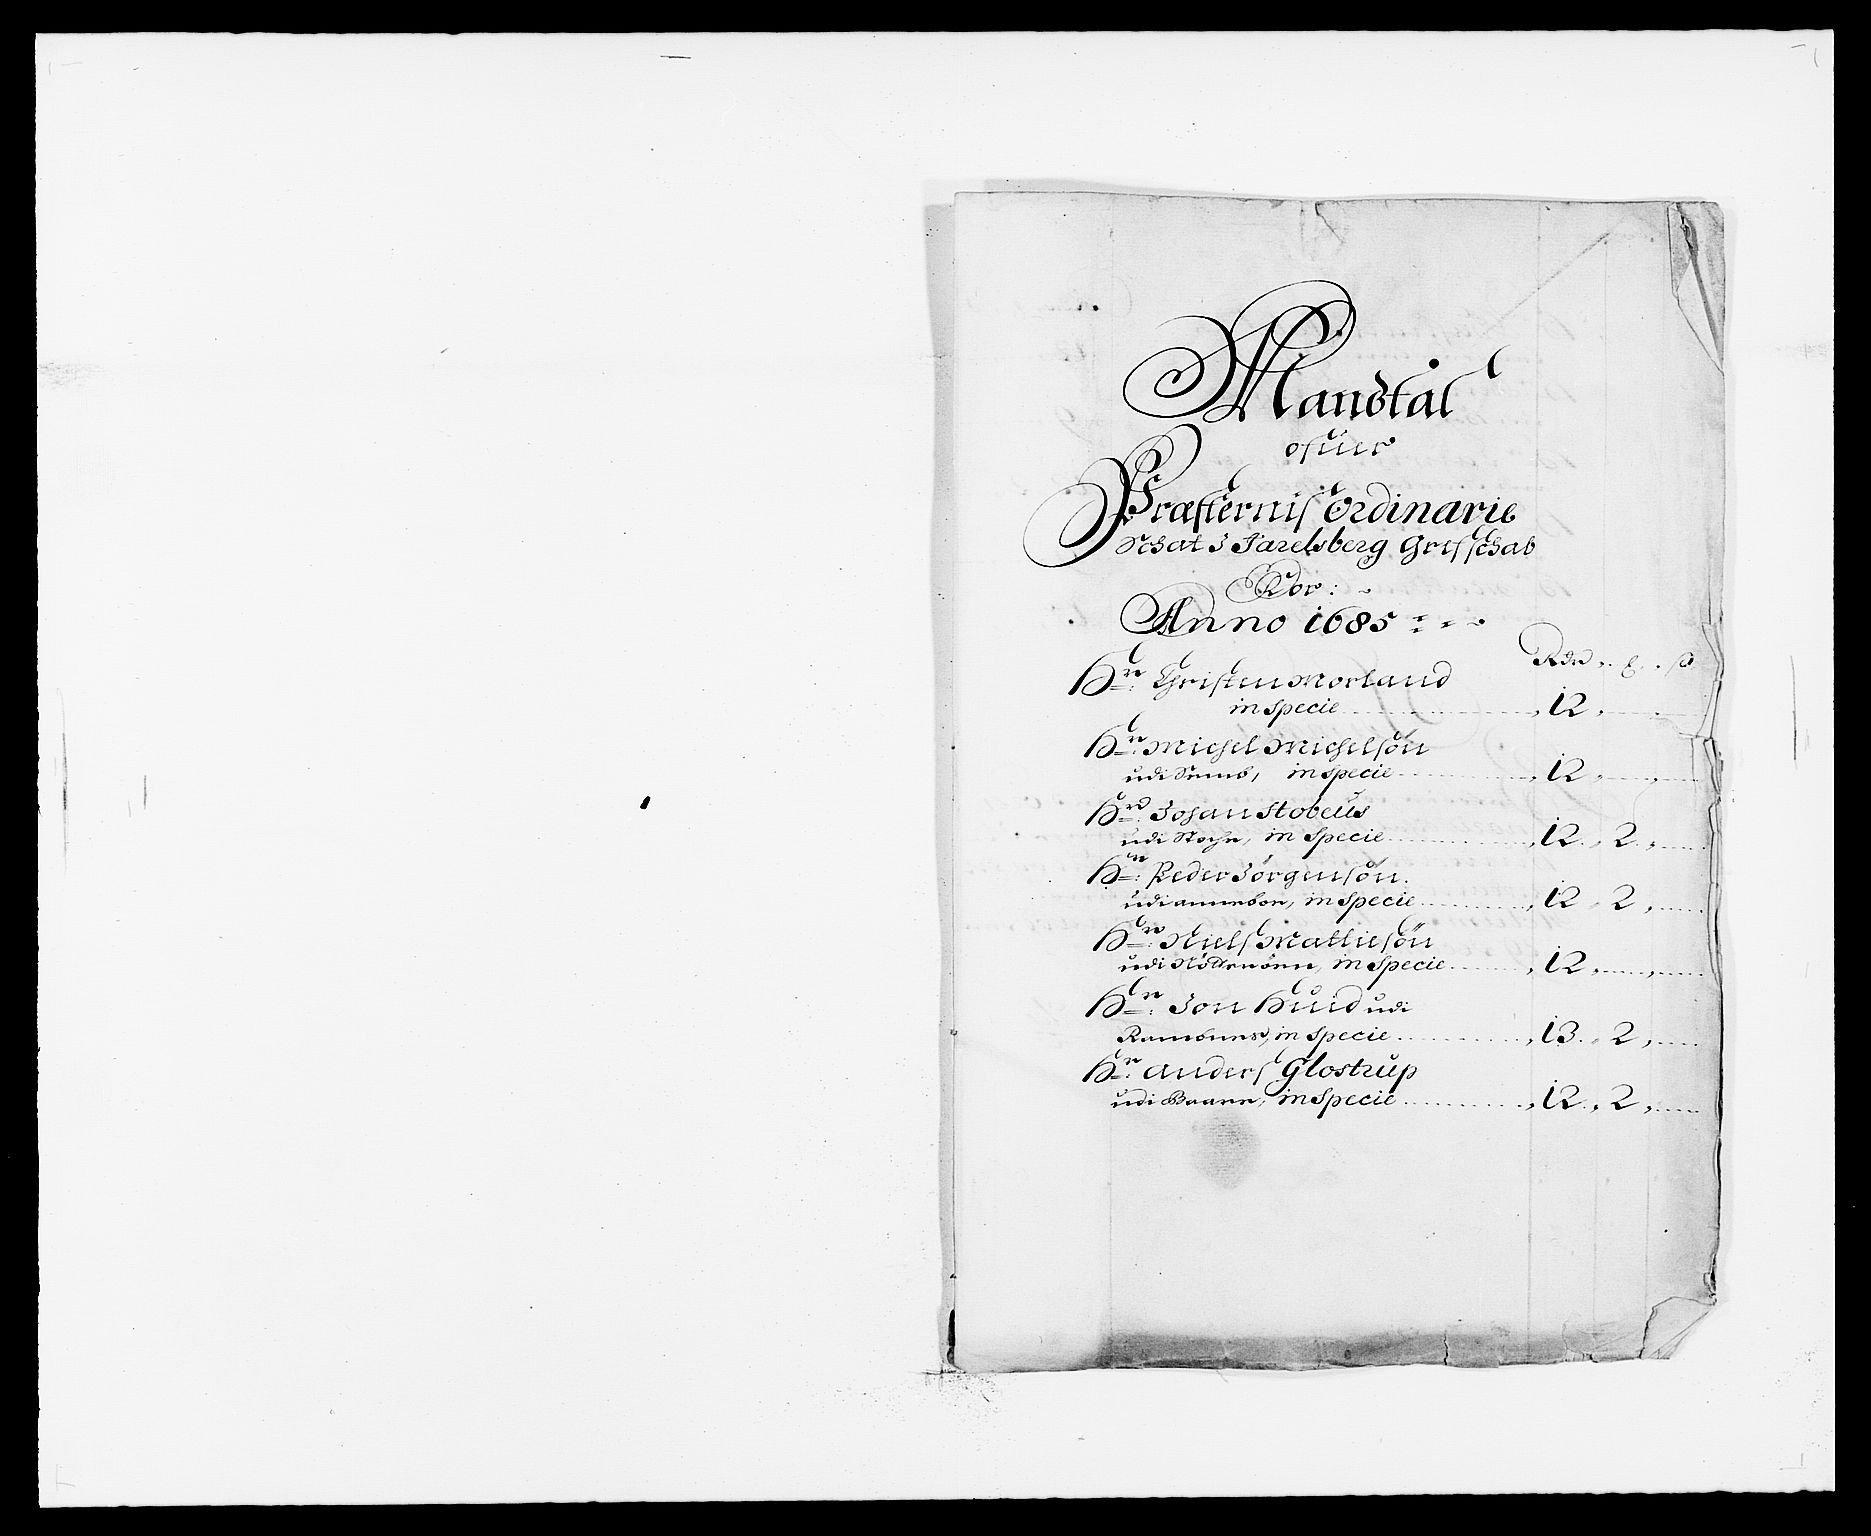 Mandtal
ofuer
Præsternis Ordinarie
Schat I Jarelsberg Grefschab
For:
Anno 1685
Rdr ß
Hr: Christen Morland
in Specie 12
Hr: Michel Michelsön
udi Semb, in Specie 12
Hr: Johan Stobeus
udi Stoche, in Specie 12 2
Hr: Peder Jörgensön
udi Annebou, in Specie 12 2
Hr: Niels Mathiesön
udi Nötteröen, in Specie 12
Hr: Jon Huid udi
Ramdness, in Specie 13 2
Hr: Anders Glostrup
udi Baare, in Specie 12 2